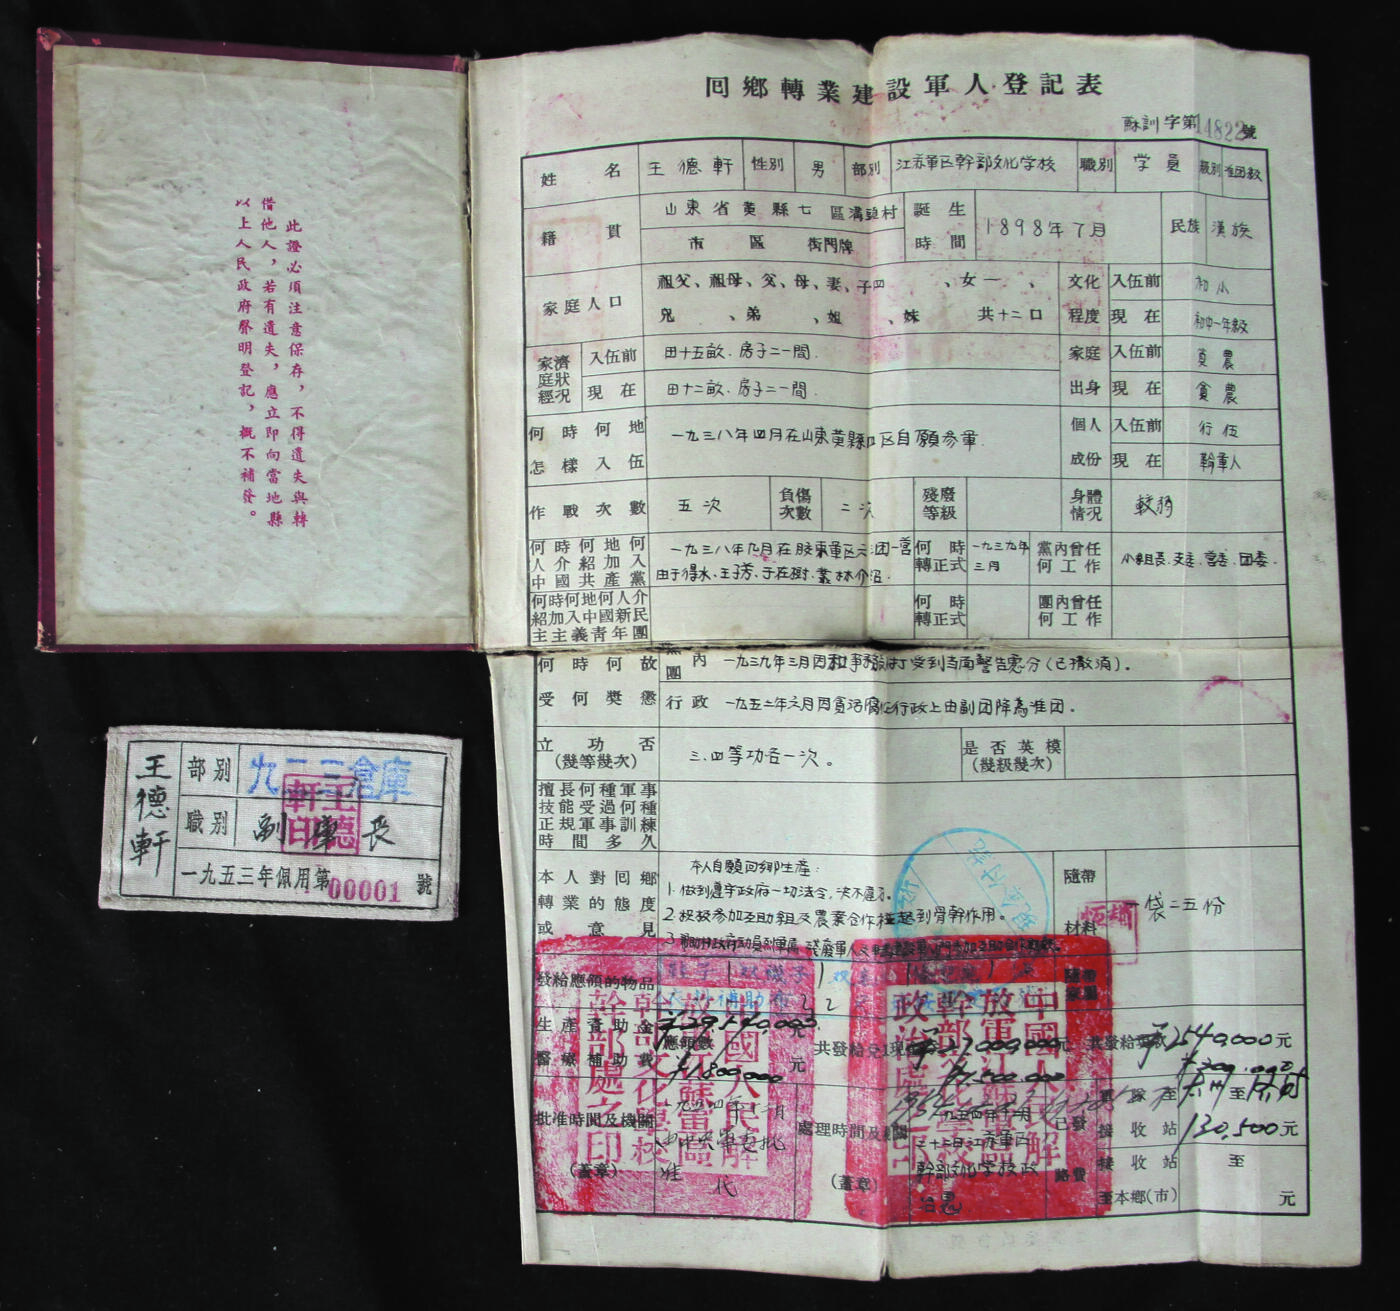 此證必須注意保存，不得遺失與轉
借他人，若有遺失，應立即向當地縣
以上人民政府聲明登記，概不補發。
回鄉轉業建設軍人登記表
蘇訓字第14822號
姓名 王德軒 性別 男 部別 江苏軍区幹部文化学校 職別 学員 級別 准团級
籍貫 山東省黄縣七區溝頭村 誕生時間 1898年7月 民族 漢族
市 區 街門牌
家庭人口 祖父、祖母、父、母、妻、子四、女一、
兄、弟、姐、妹 共十二口
文化程度 入伍前 初小
現在 初中一年級
家庭經濟狀況 入伍前 田十五畝．房子二一間．
現在 田十二畝．房子二一間．
家庭出身 入伍前 貧農
現在 貧農
何時何地怎樣入伍 一九三八年四月在山東黄縣四区自願參軍．
個人成份 入伍前 行伍
現在 革軍人
作戰次數 五次 負傷次數 二次 殘廢等級 身體情况 較弱
何時何地何人介紹加入中國共產黨 一九三八年九月在胶東軍区六三团一营
由于得水．王子芳．于在樹．叢林介紹．
何時轉正式 一九三九年三月 黨內曾任何工作 小組長．支委．营委．团委．
何時何地何人介紹加入中國新民主主義青年團 何時轉正式 團內曾任何工作
何時何故受何獎懲 黨團內 一九三九年三月因私事打受到当面警告處分（已撤消）．
行政 一九五二年六月因貪污腐化行政上由副团降為准团．
立功否（幾等幾次） 三、四等功各一次。 是否英模（幾級幾次）
擅長何種軍事技能受過何種正規軍事訓練時間多久
本人對回鄉轉業的態度或意見 本人自願回鄉生產：
1. 做到遵守政府一切法令，決不違反．
2. 积极参加互助組及農業合作社起到骨幹作用。
隨帶材料 一袋二五份
發給應領的物品
隨帶
生產資助金 應領數 29,540,000元 共發給兌現 27,000,000元 共發給獎款 2540,000元
醫療補助費 1,800,000元 1,500,000 300,000元
批准時間及機關（蓋章） 一九五四年 月 中央軍委批准
處理時間及機關（蓋章） 一九五四年十一月三十日江苏軍区幹部文化学校政治處
已發路費 至
接收站 130,500元
接收站 至
至本鄉（市） 元
中國人民解放軍江蘇軍區幹部文化學校政治處
幹部處之印
王德軒
部別 九一三倉庫
職別 副庫長
王德軒印
一九五三年佩用第00001號